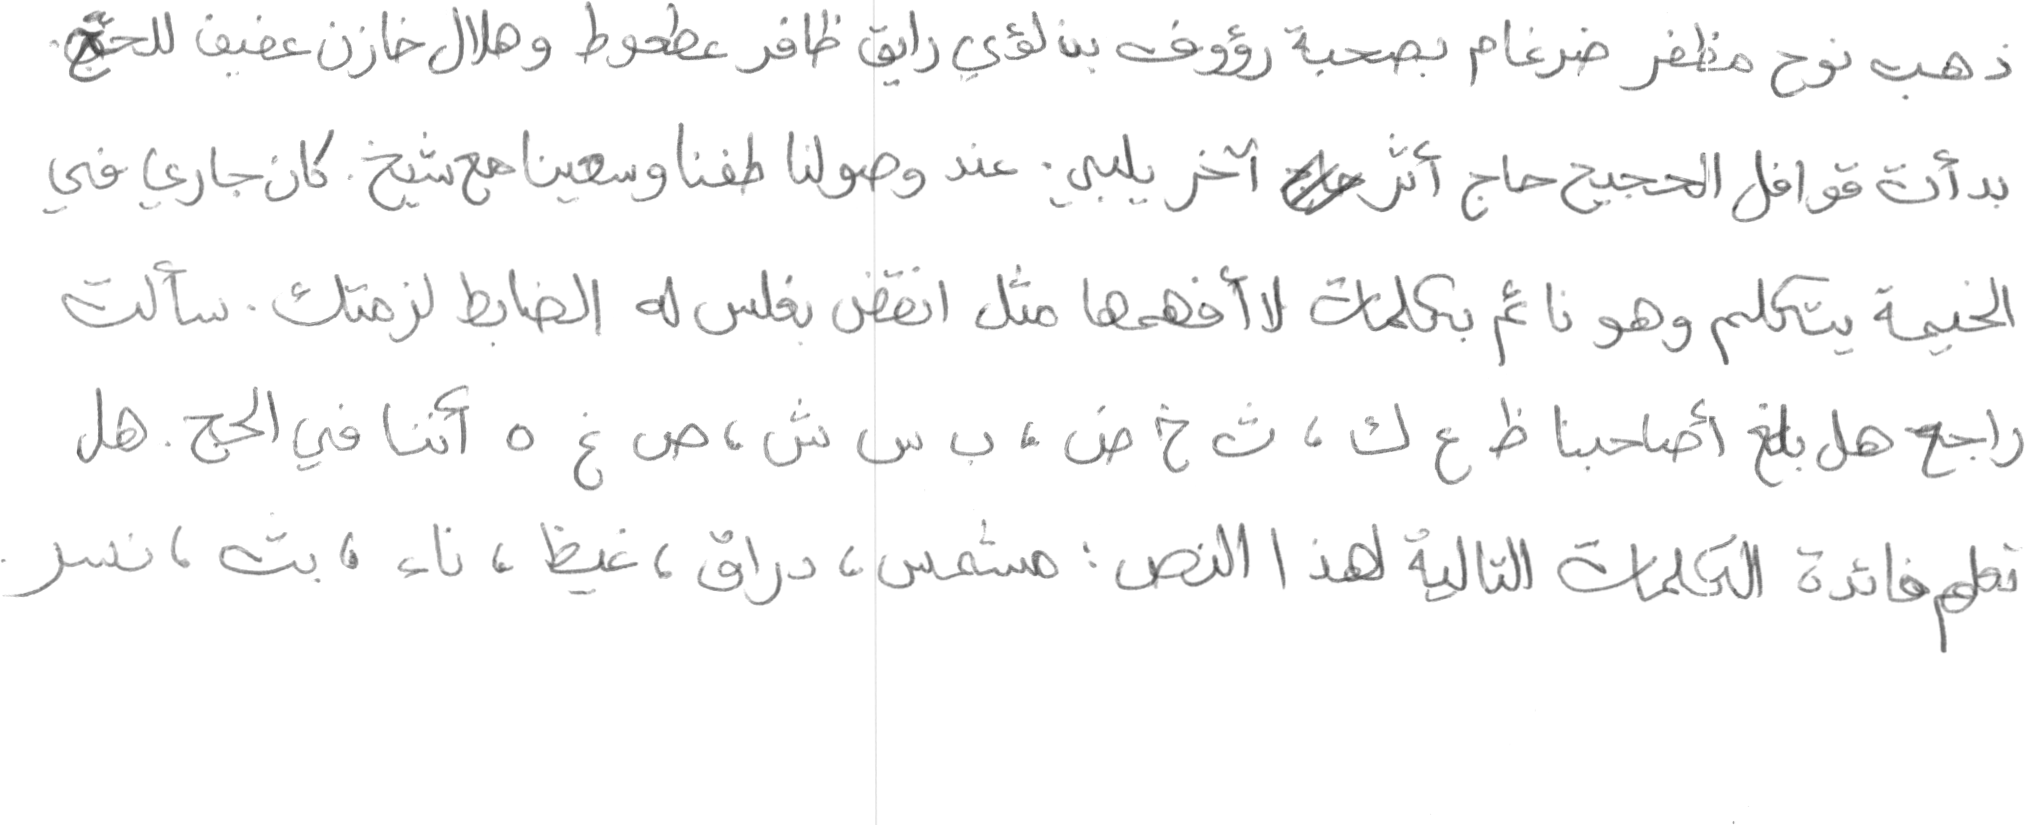 ذهب نوح مظفر ضرغام بصحبة رؤوف بن لؤي رايق ظافر عطعوط وهلال خازن عفيف للحج.
بدأت قوافل الحجيج حاج أثر آخر يلبي. عند وصولنا طفنا وسعينا مع شيخ. كان جاري في
الخيمة يتكلم وهو نائم بكلمات لا أفهمها مثل انقض بغلس له الضابط لزمتك. سألت
راجع هل بلغ أصاحبنا ظ ع ك، ث خ ض، ب س ش، ص غ ه أثنا في الحج. هل
تعلم فائدة الكلمات التالية لهذا النص: مشمس، دراق، غيظ، ناء، بث، نسر.